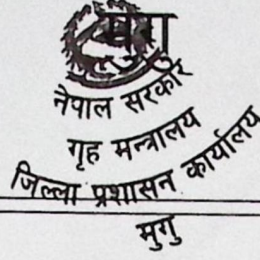 मुगु
नेपाल सरकार
गृह मन्त्रालय
जिल्ला प्रशासन कार्यालय
मुगु